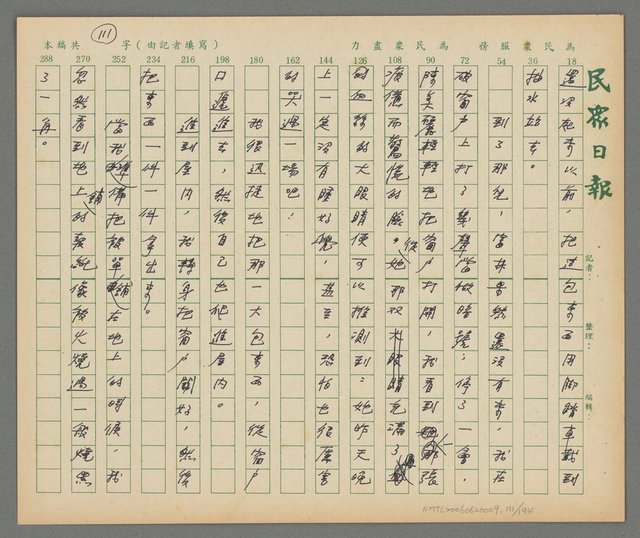 本稿共 字（由記者填寫） 為民眾盡力 為民眾服務
111
288 270 252 234 216 198 180 162 144 126 108 90 72 54 36 18
民眾日報
記者：
整理：
編輯：
還沒起來以前，把這包東西用腳踏車載到
抽水站來。
到了那兒，富株果然還沒有來，我在
破窗戶上打了幾聲當做暗號，停了一會，
陣美麗輕輕地把窗戶打開，我看到那張
淒傷而驚慌的臉。從她那雙眼睛充滿了
的血絲的大眼睛便可以推測到她昨天晚
上一定沒有睡好覺，甚至，恐怕也很厲害
的哭過一場吧！
我很迅捷地把那一大包東西，從窗戶
口遞進去，然後自己也爬進屋內。
進到屋內，我轉身把窗戶關好，然後
把東西一件一件拿出來。
當我準備把被單舖在地上的時候，我
忽然看到地上舖的草蓆像被火燒過一般燒黑
了一角。
NMTL20060620009, 111/194